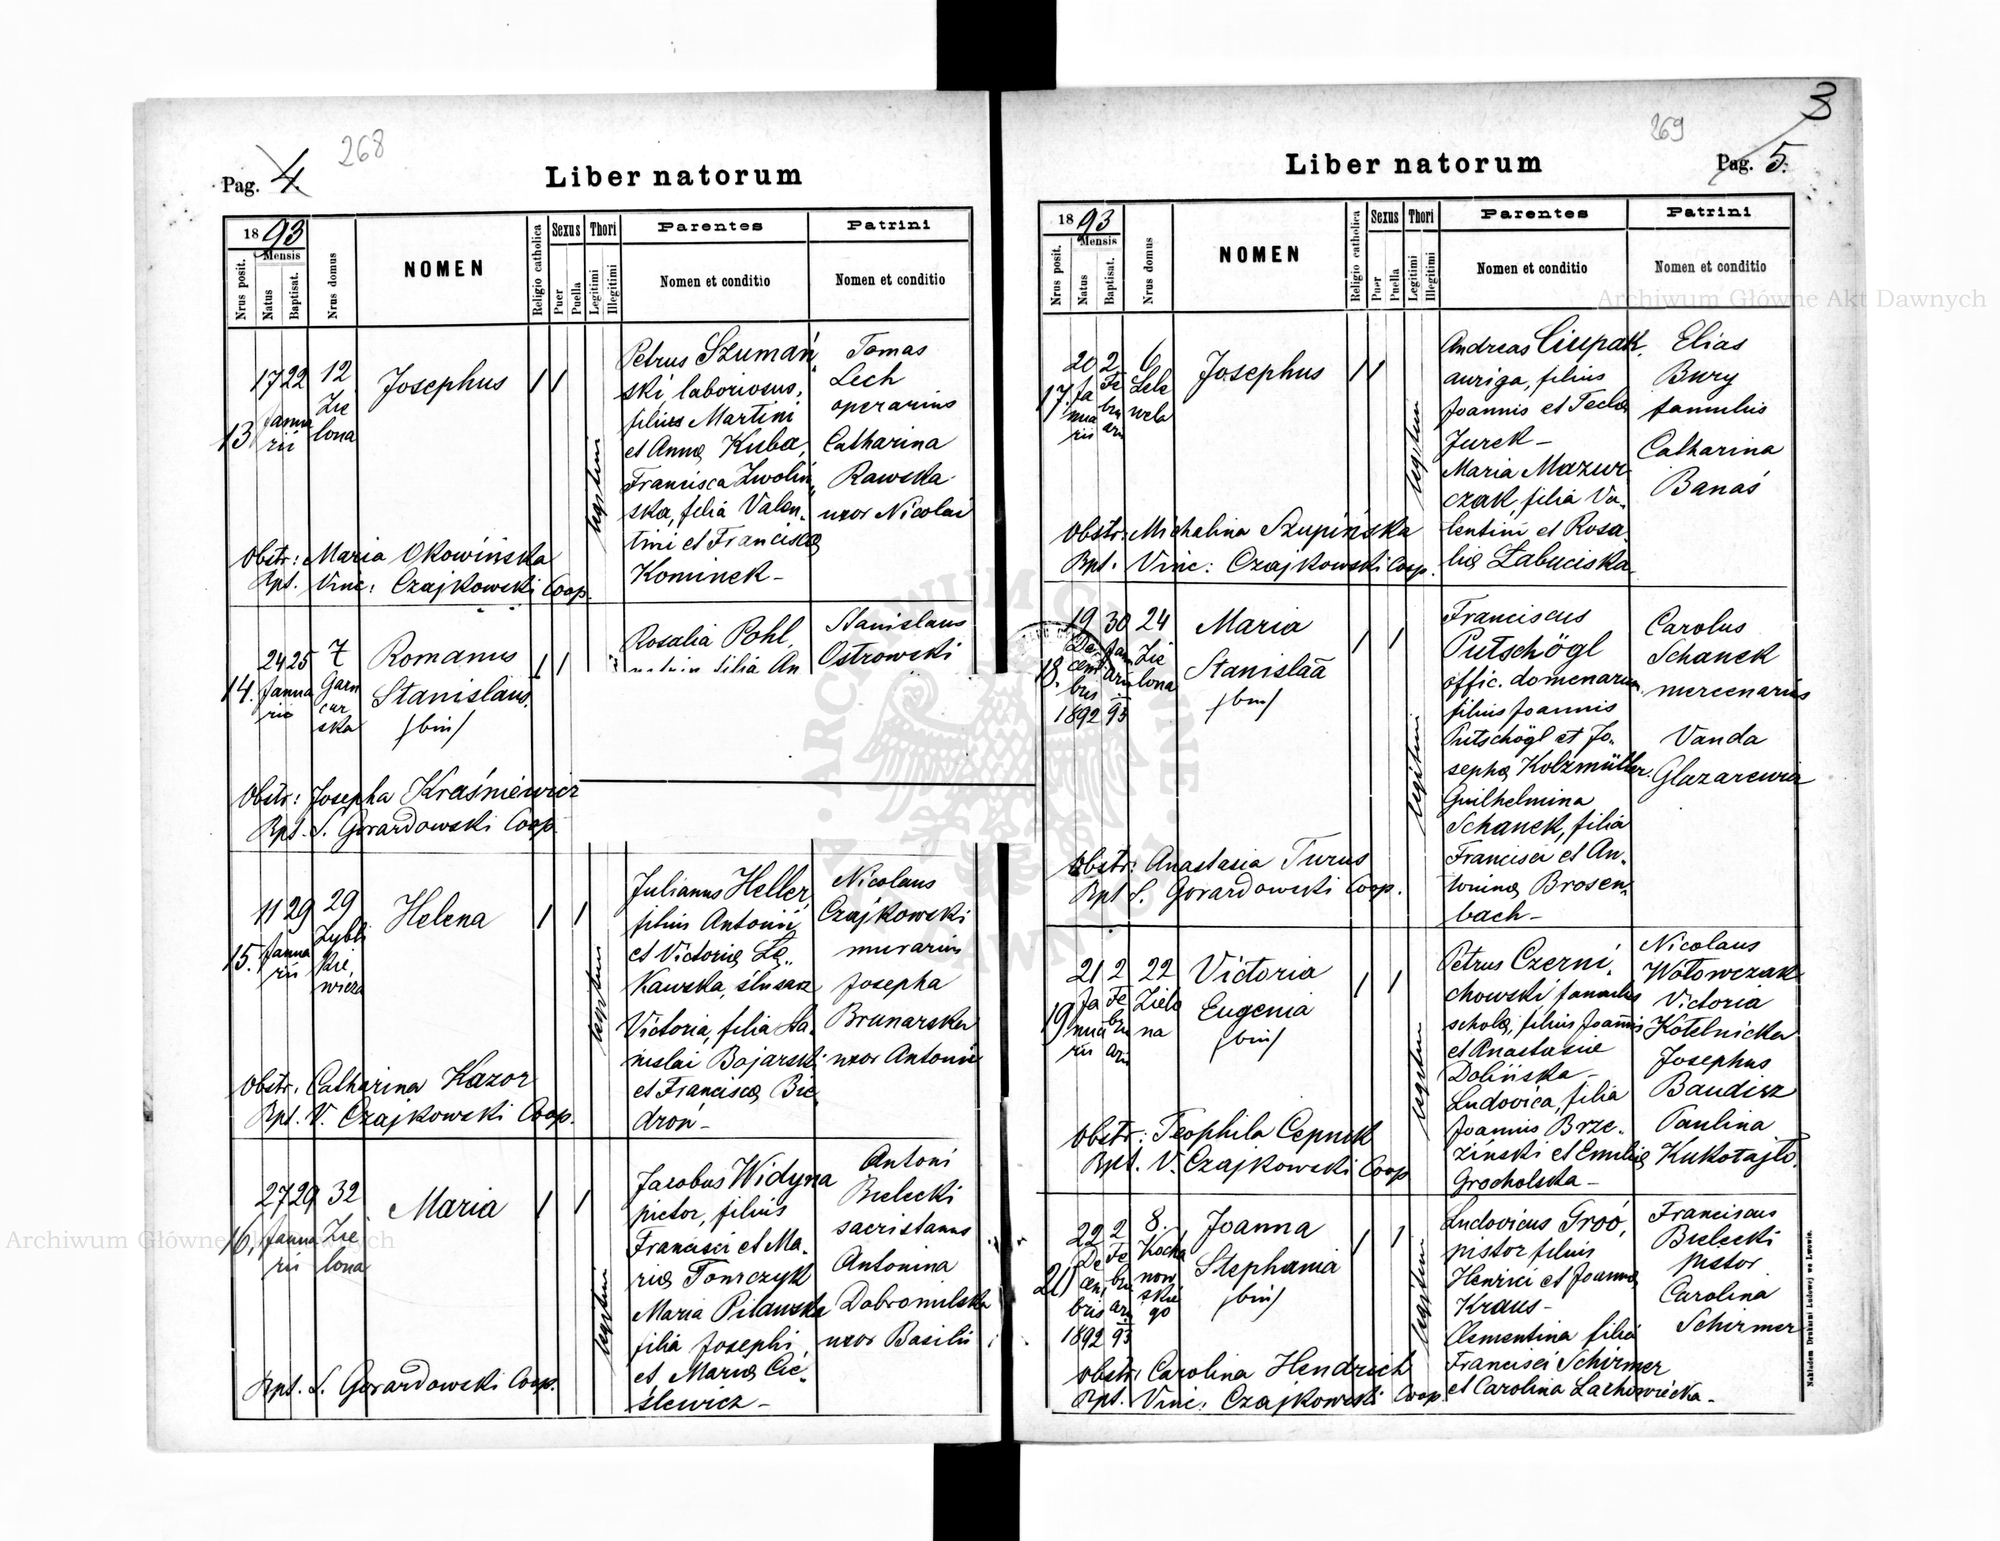 Pag. 4.
268
Liber natorum
18 93
Nrus posit.
Mensis
Natus
Baptisat.
Nrus domus
NOMEN
Religio catholica
Sexus
Puer
Puella
Thori
Legitimi
Illegitimi
Parentes
Nomen et conditio
Patrini
Nomen et conditio
13
17 22
Janua
rii
12
Zie
lona
Josephus
legitimi
Petrus Szumań
ski, laboriosus,
filius Martini
et Annæ Kuba,
Francisca Zwoliń
ska, filia Valen-
tini et Franciscæ
Kominek-
Tomas
Lech
operarius
Catharina
Rawska
uxor Nicolai
Obstr: Maria Okowińska
Bpt. Vinc: Czajkowski Coop.
14.
24 25
Janua
rii
7
Garn
car
ska
Romanus
Stanislaus
/bin/
Rosalia Pohl,
filia An
Stanislaus
Ostrowski
Obstr: Josepha Kraśniewicz
Bpt. S. Gorardowski Coop
15.
11 29
Janua
rii
29
Zybli
kie
wicza
Helena
legitimi
Julianus Heller,
filius Antonii
et Victoriæ Łą-
kawska, ślusarz
Victoria, filia Sta-
nislai Bajarski
et Franciscæ Bie
droń-
Nicolaus
Czajkowski
murarius
Josepha
Brunarska
uxor Antonii
Obstr. Catharina Kazor
Bpt. V. Czajkowski Coop.
16,
27 29
Janua
rii
32
Zie
lona
Maria
legitimi
Jacobus Widyna
pictor, filius
Francisci et Ma-
riæ Tomczyk
Maria Pilawska
filia Josephi,
et Mariæ Cie-
ślewicz-
Antoni
Bielecki
sacristanus
Antonina
Dobromilska
uxor Basilii
Bpt. S. Gorardowski Coop.
3
269
Liber natorum
Pag. 5.
18 93
Nrus posit.
Mensis
Natus
Baptisat.
Nrus domus
NOMEN
Religio catholica
Sexus
Puer
Puella
Thori
Legitimi
Illegitimi
Parentes
Nomen et conditio
Patrini
Nomen et conditio
17.
20 2
Ja Fe
nua bru
rii arii
6
Lele
wela
Josephus
legitimi
Andreas Ciupak,
auriga, filius
Joannis et Teclæ
Jurek-
Maria Mazur-
czak, filia Va-
lentini et Rosa-
liæ Łabuciska
Elias
Bury
famulus
Catharina
Banaś
Obstr: Michalina Szupińska
Bpt. Vinc: Czajkowski Coop.
18.
19 30
De Janu
cem arii
bris
1892 93
24
Zie
lona
Maria
Stanislaa
/bin/
legitimi
Franciscus
Putschögl
offic. domenarum,
filius Joannis
Putschögl et Jo-
sephæ Kolzmüller.
Guilhelmina
Schanek, filia
Francisci et An-
toninæ Brosen-
bach-
Carolus
Schanek
mercenarius
Vanda
Glazarewicz
Obstr: Anastasia Turus
Bpt S. Gorardowski Coop.
19
21 2
Ja Fe
nua bru
rii arii
22
Zielo
na
Victoria
Eugenia
/bin/
legitimi
Petrus Czerni-
chowski famulus
scholæ, filius Joannis
et Anastasiæ
Dolińska-
Ludovica, filia
Joannis Brze-
ziński et Emiliæ
Grocholska-
Nicolaus
Wołowczak
Victoria
Kotelnicka
Josephus
Baudisz
Paulina
Kukołajło.
Obstr: Teophila Cepnik
Bpt. V. Czajkowski Coop
20
22 2
De Fe
cem bru
bris arii
1892 93
8.
Kocha
now
skie
go
Joanna
Stephania
/bin/
legitimi
Ludovicus Groó,
pistor filius
Henrici et Joannæ
Kraus-
Clementina filia
Francisci Schirmer
et Carolina Lachowiecka-
Franciscus
Bielecki
pistor
Carolina
Schirmer
Obstr: Carolina Hendrich
Bpt. Vinc: Czajkowski Coop
Nakładem Drukarni Ludowej we Lwowie.
Archiwum Główne Akt Dawnych
Archiwum Główne Akt Dawnych
ARCHIWUM GŁÓWNE AKT DAWNYCH